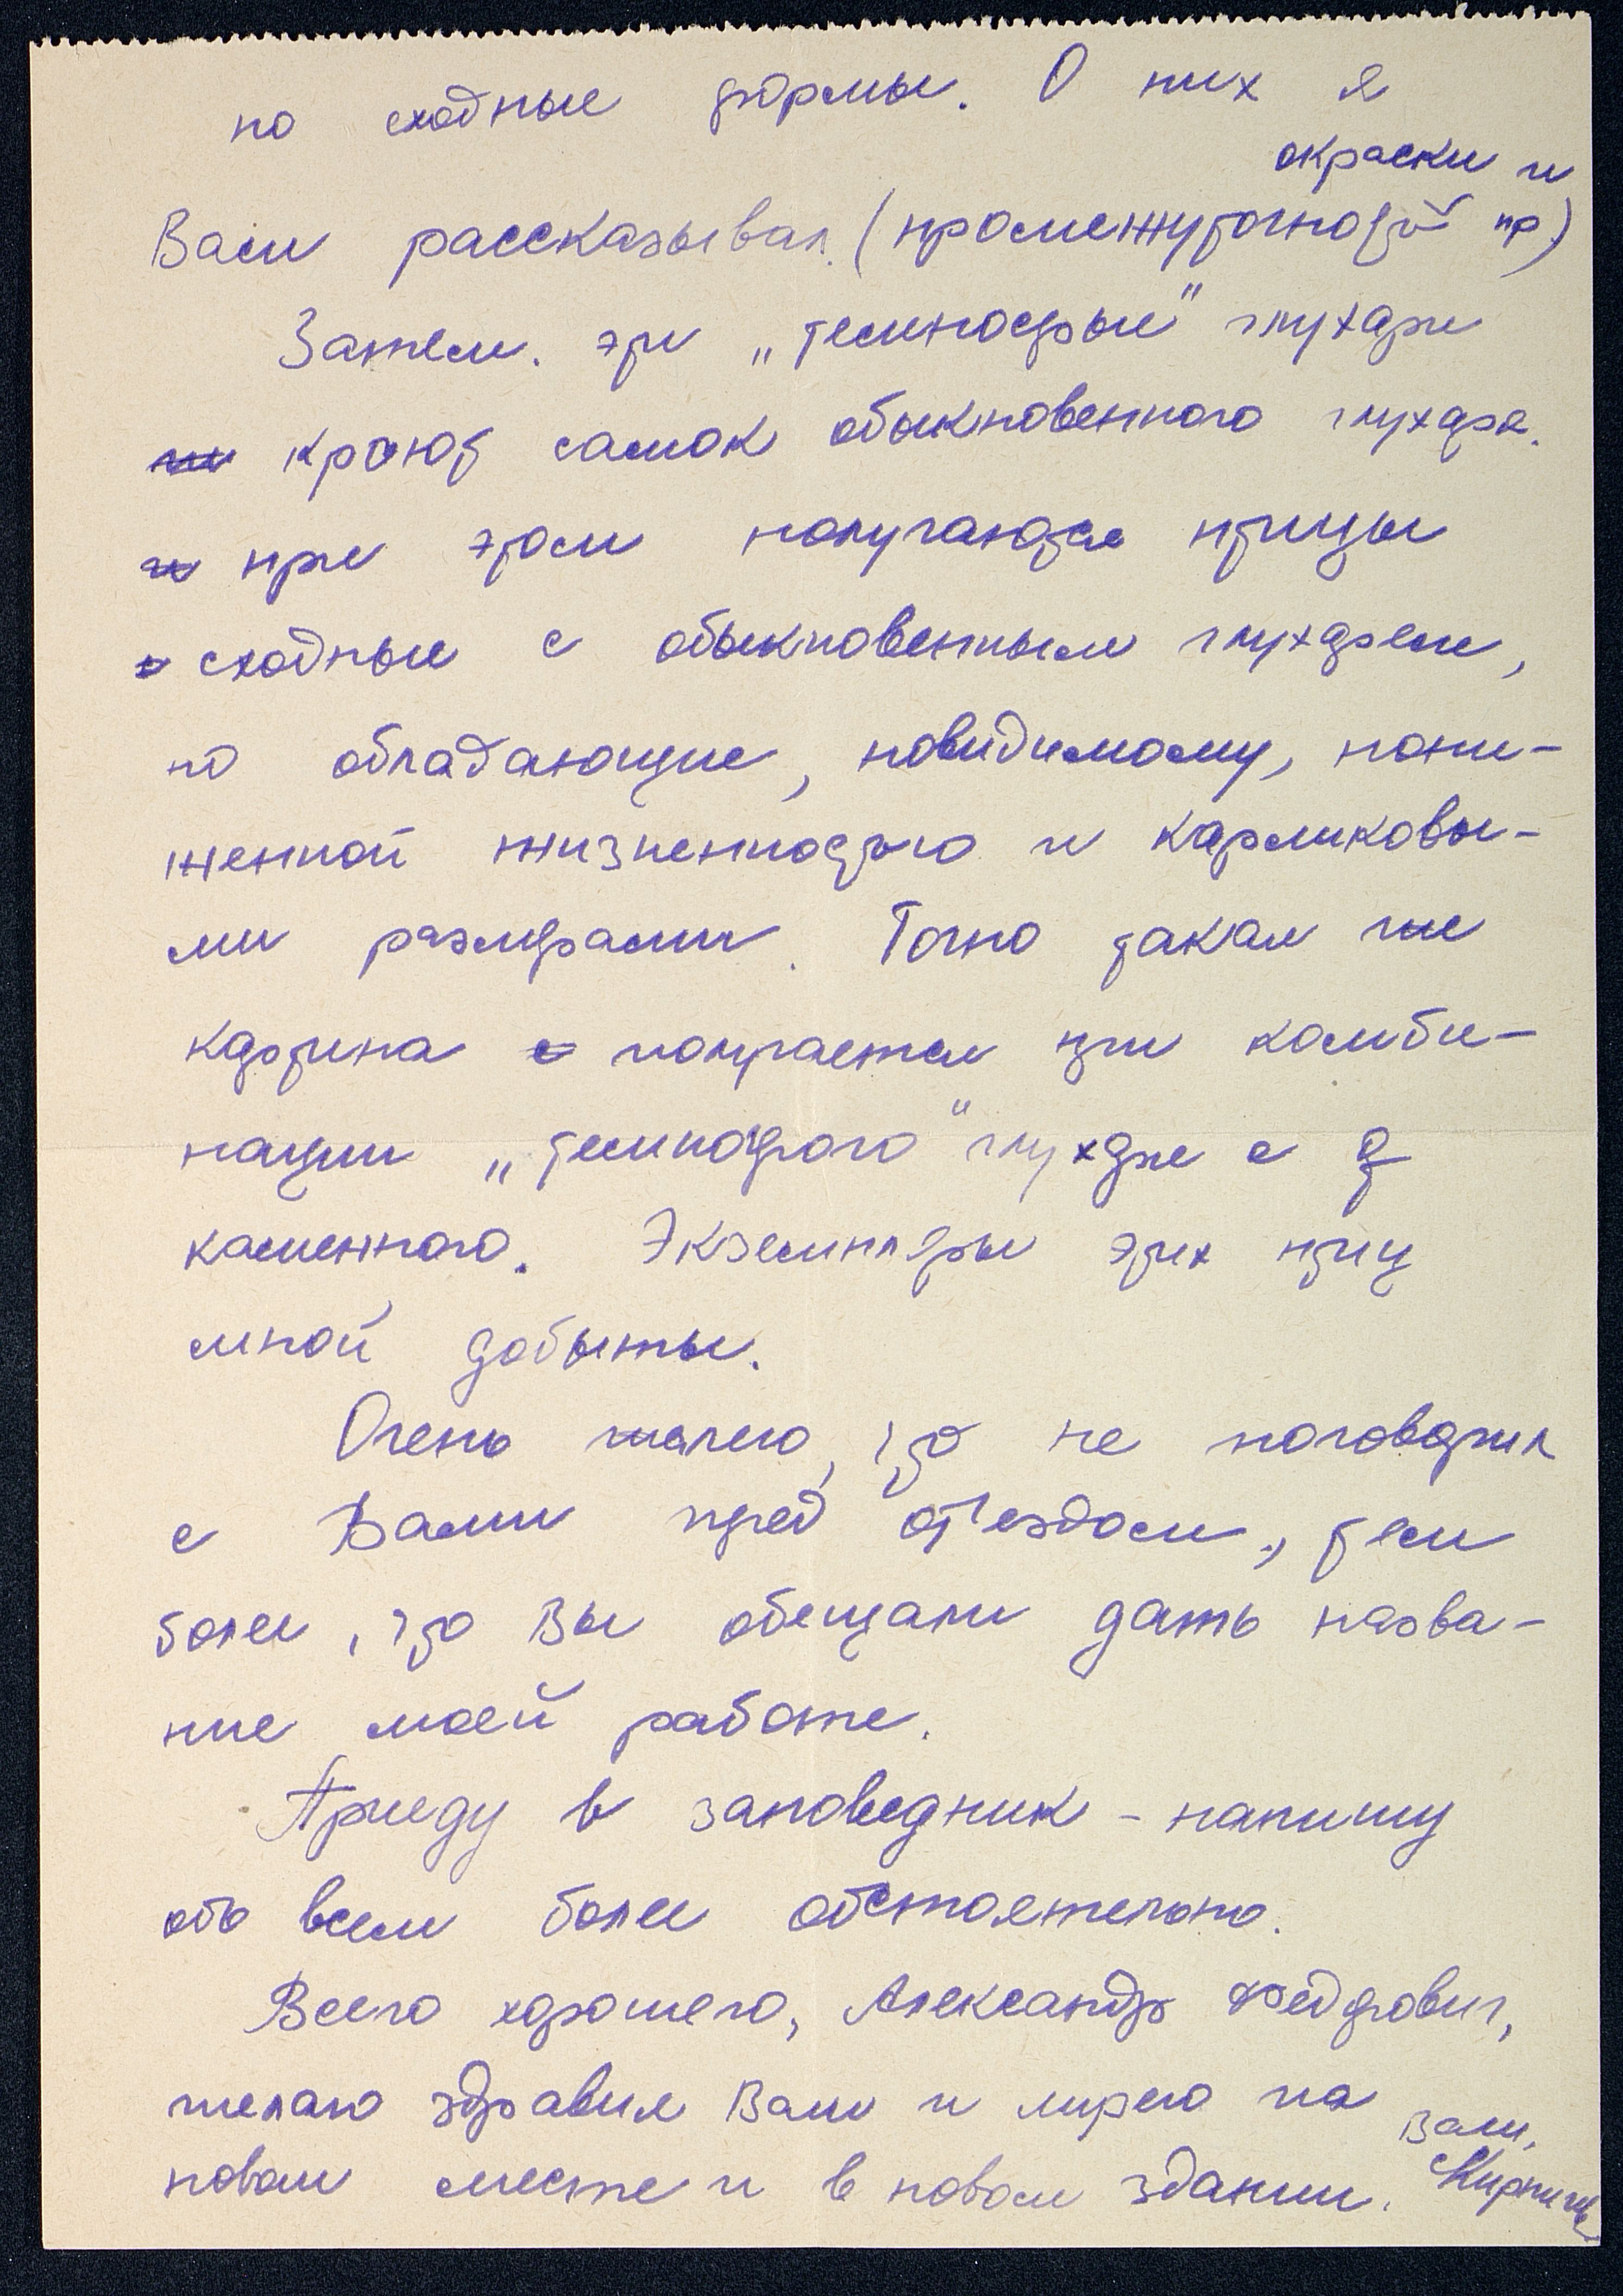 но сходные формы. О них я
окраски и
Вам рассказывал. (промежуточной пр)
Затем. эти „темнохвостые" глухари
кроют самок обыкновенного глухаря.
при этом получаются птицы
сходные с обыкновенным глухарем,
но обладающие, повидимому, пони-
женной жизненностью и карликовы-
ми размерами. Точно такая же
картина получается при комби-
нации глухаря с
каменного. Экземпляры этих птиц
мной добыты.
Очень жалею, что не поговорил
с Вами перед от'ездом, тем
более, что Вы обещали дать назва-
ние моей работе.
Приеду в заповедник - напишу
обо всем более обстоятельно.
Всего хорошего, Александр Федорович,
желаю здравия Вам и мирно на
новом месте и в новом здании. Ваш,